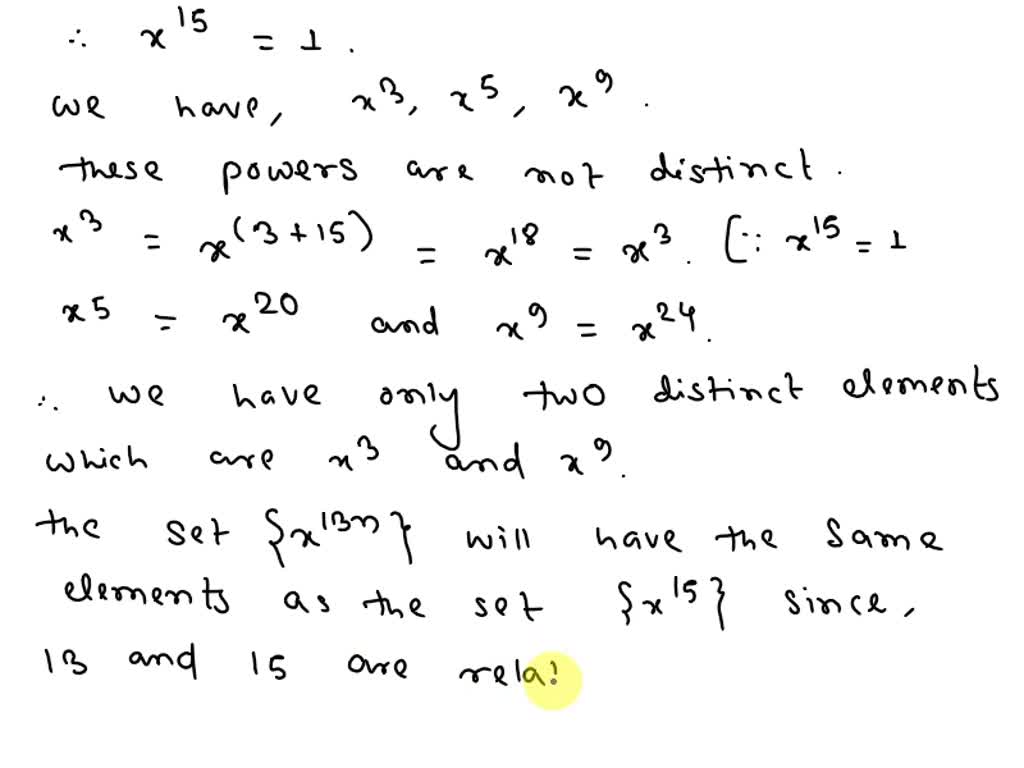 ∴ x^15 = 1 .
we have, x^3, x^5, x^9 .
these powers are not distinct .
x^3 = x^(3+15) = x^18 = x^3. [∵ x^15 = 1
x^5 = x^20 and x^9 = x^24.
∴ we have only two distinct elements
which are x^3 and x^9.
the set {x^13n} will have the same
elements as the set {x^15} since,
13 and 15 are rela